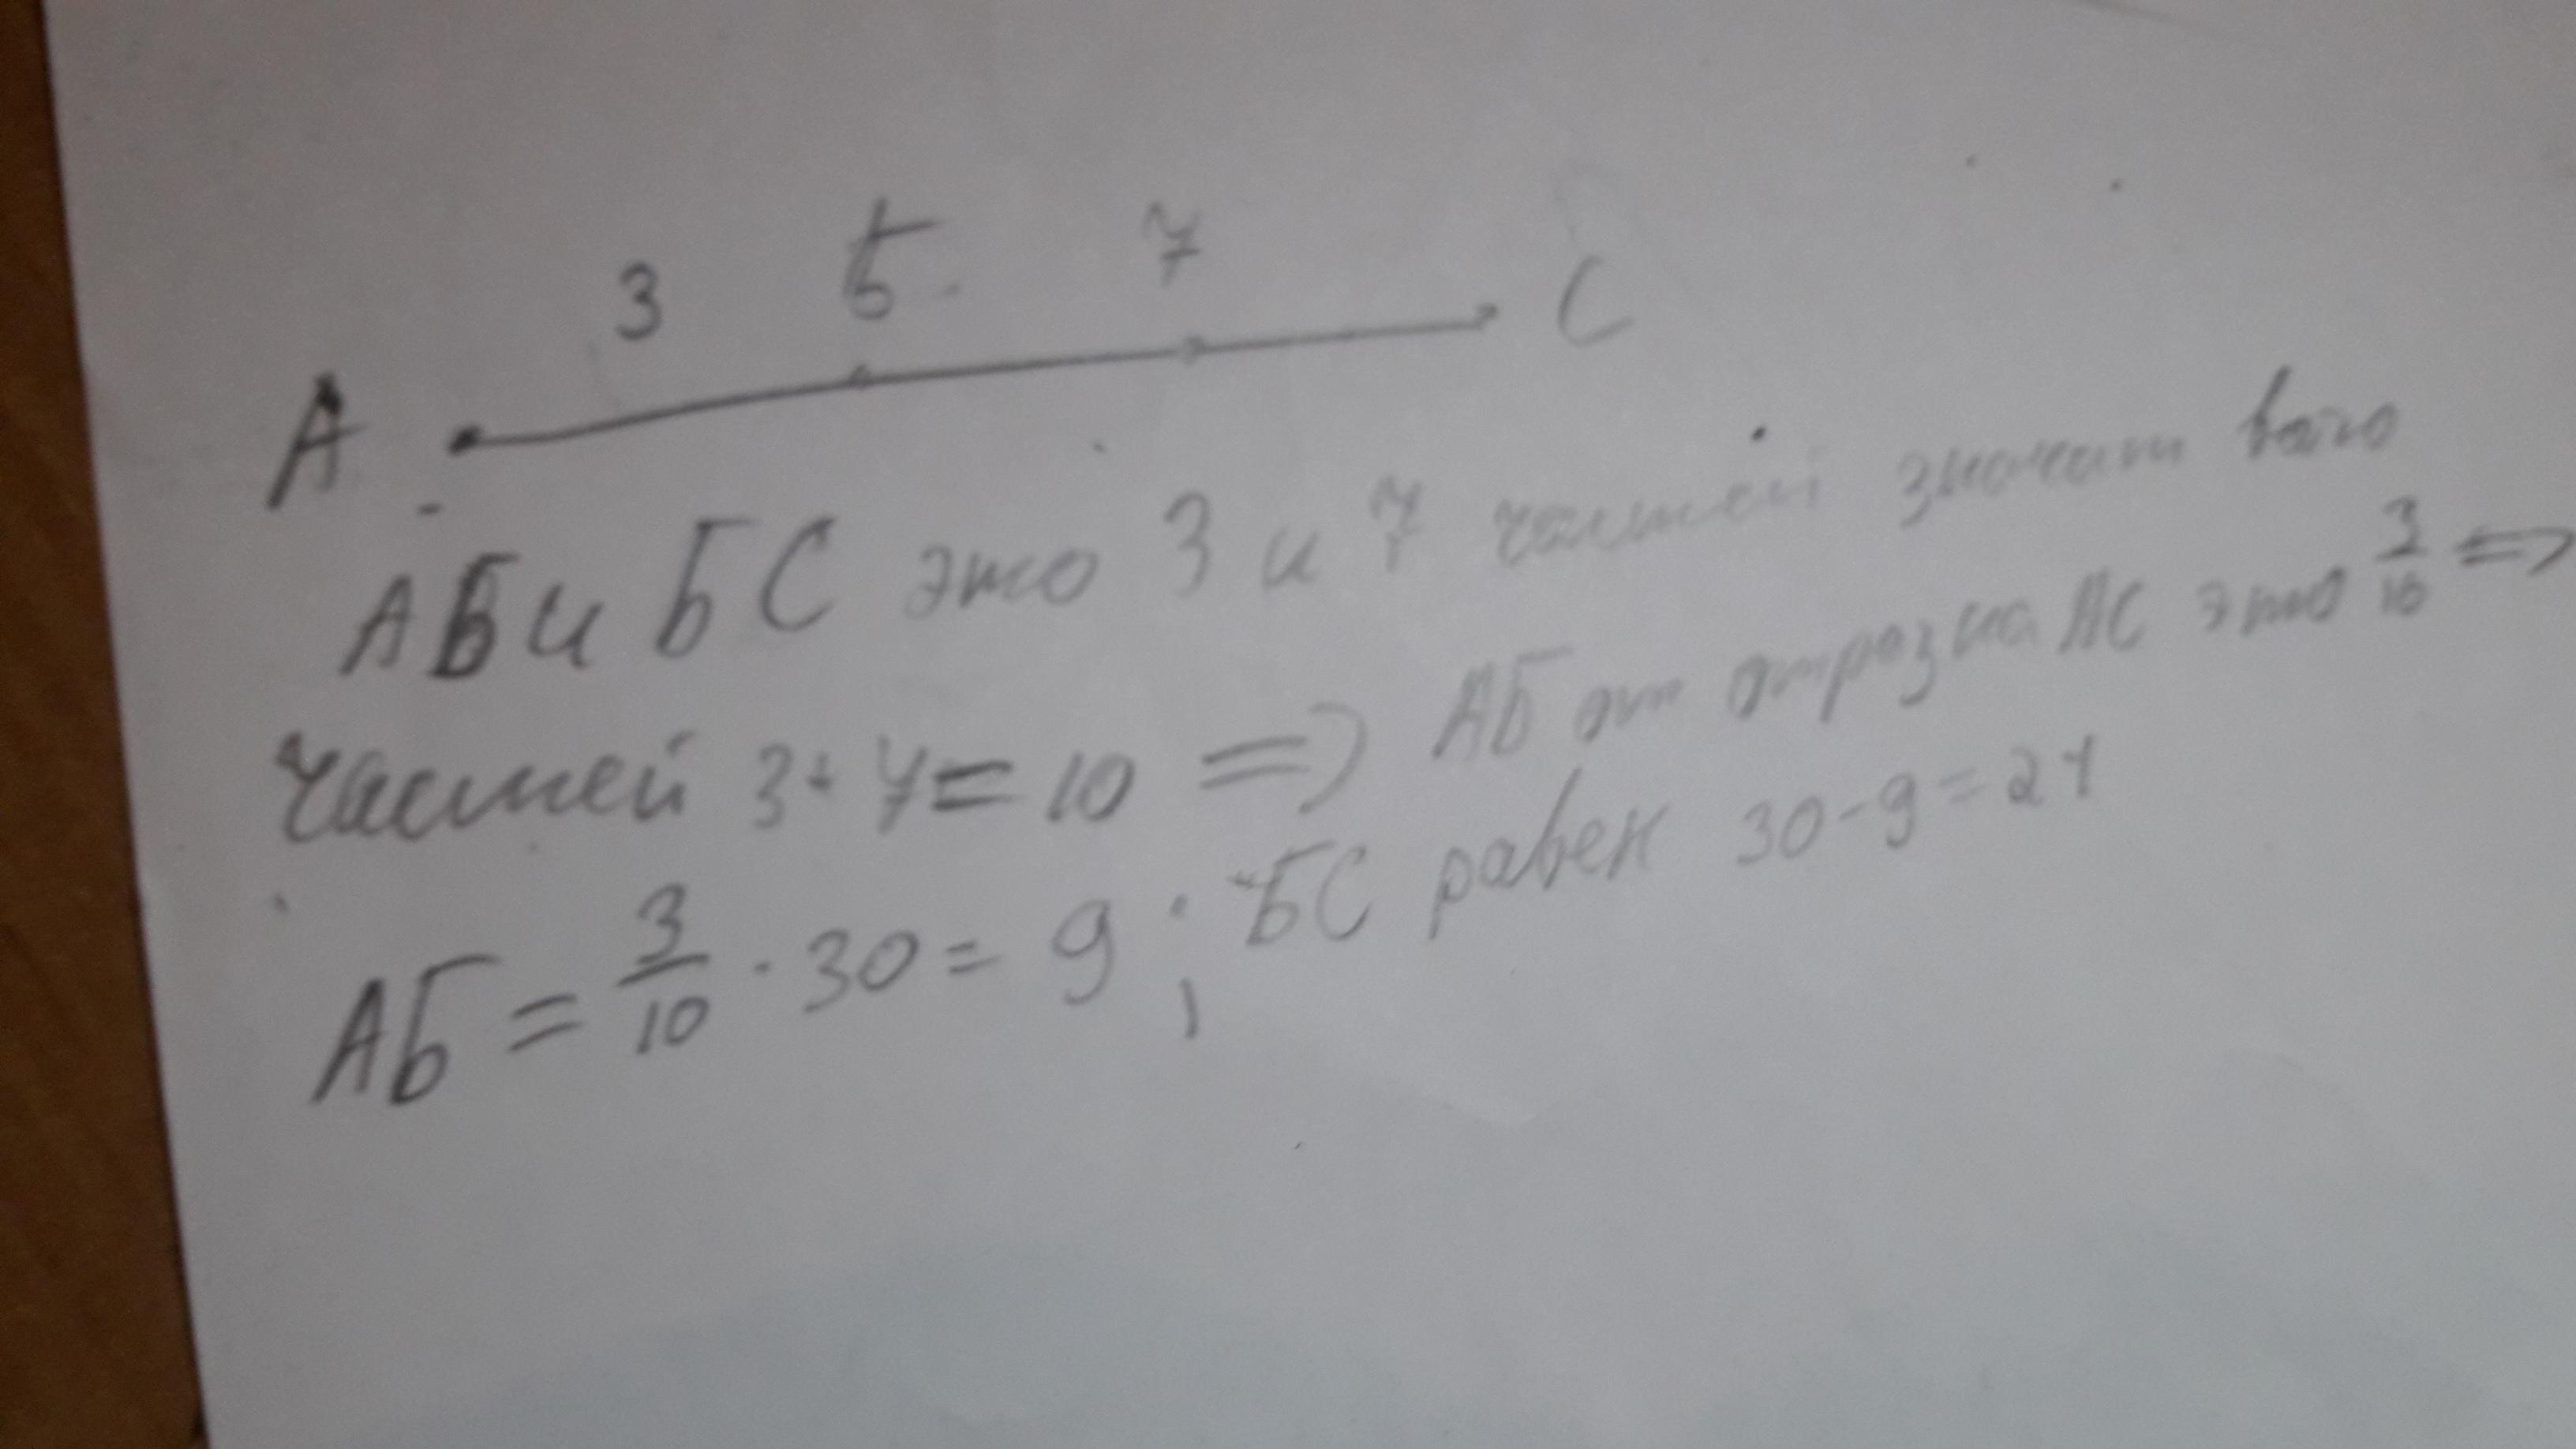 3 Б 7
А С
АБ и БС это 3 и 7 частей значит всего
частей 3+7=10 => АБ от отрезка АС это 3/10 =>
АБ = 3/10 · 30 = 9 ; БС равен 30-9=21